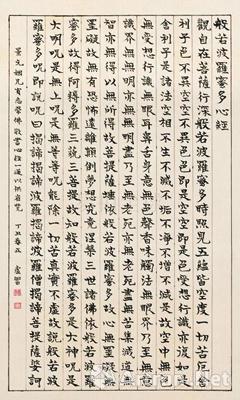 般若波羅蜜多心經
觀自在菩薩行深般若波羅蜜多時照見五蘊皆空度一切苦厄舍
利子色不異空空不異色色即是空空即是色受想行識亦復如是
舍利子是諸法空相不生不滅不垢不淨不增不減是故空中無色
無受想行識無眼耳鼻舌身意無色聲香味觸法無眼界乃至無意
識界無無明亦無無明盡乃至無老死亦無老死盡無苦集滅道無
智亦無得以無所得故菩提薩埵依般若波羅蜜多故心無罣礙無
罣礙故無有恐怖遠離顛倒夢想究竟涅槃三世諸佛依般若波羅
蜜多故得阿耨多羅三藐三菩提故知般若波羅蜜多是大神呪是
大明呪是無上呪是無等等呪能除一切苦真實不虛故說般若波
羅蜜多呪即說呪曰揭諦揭諦波羅揭諦波羅僧揭諦菩提薩婆訶
景文姻兄有志學佛敬書心經一通以供省覽 丁丑春